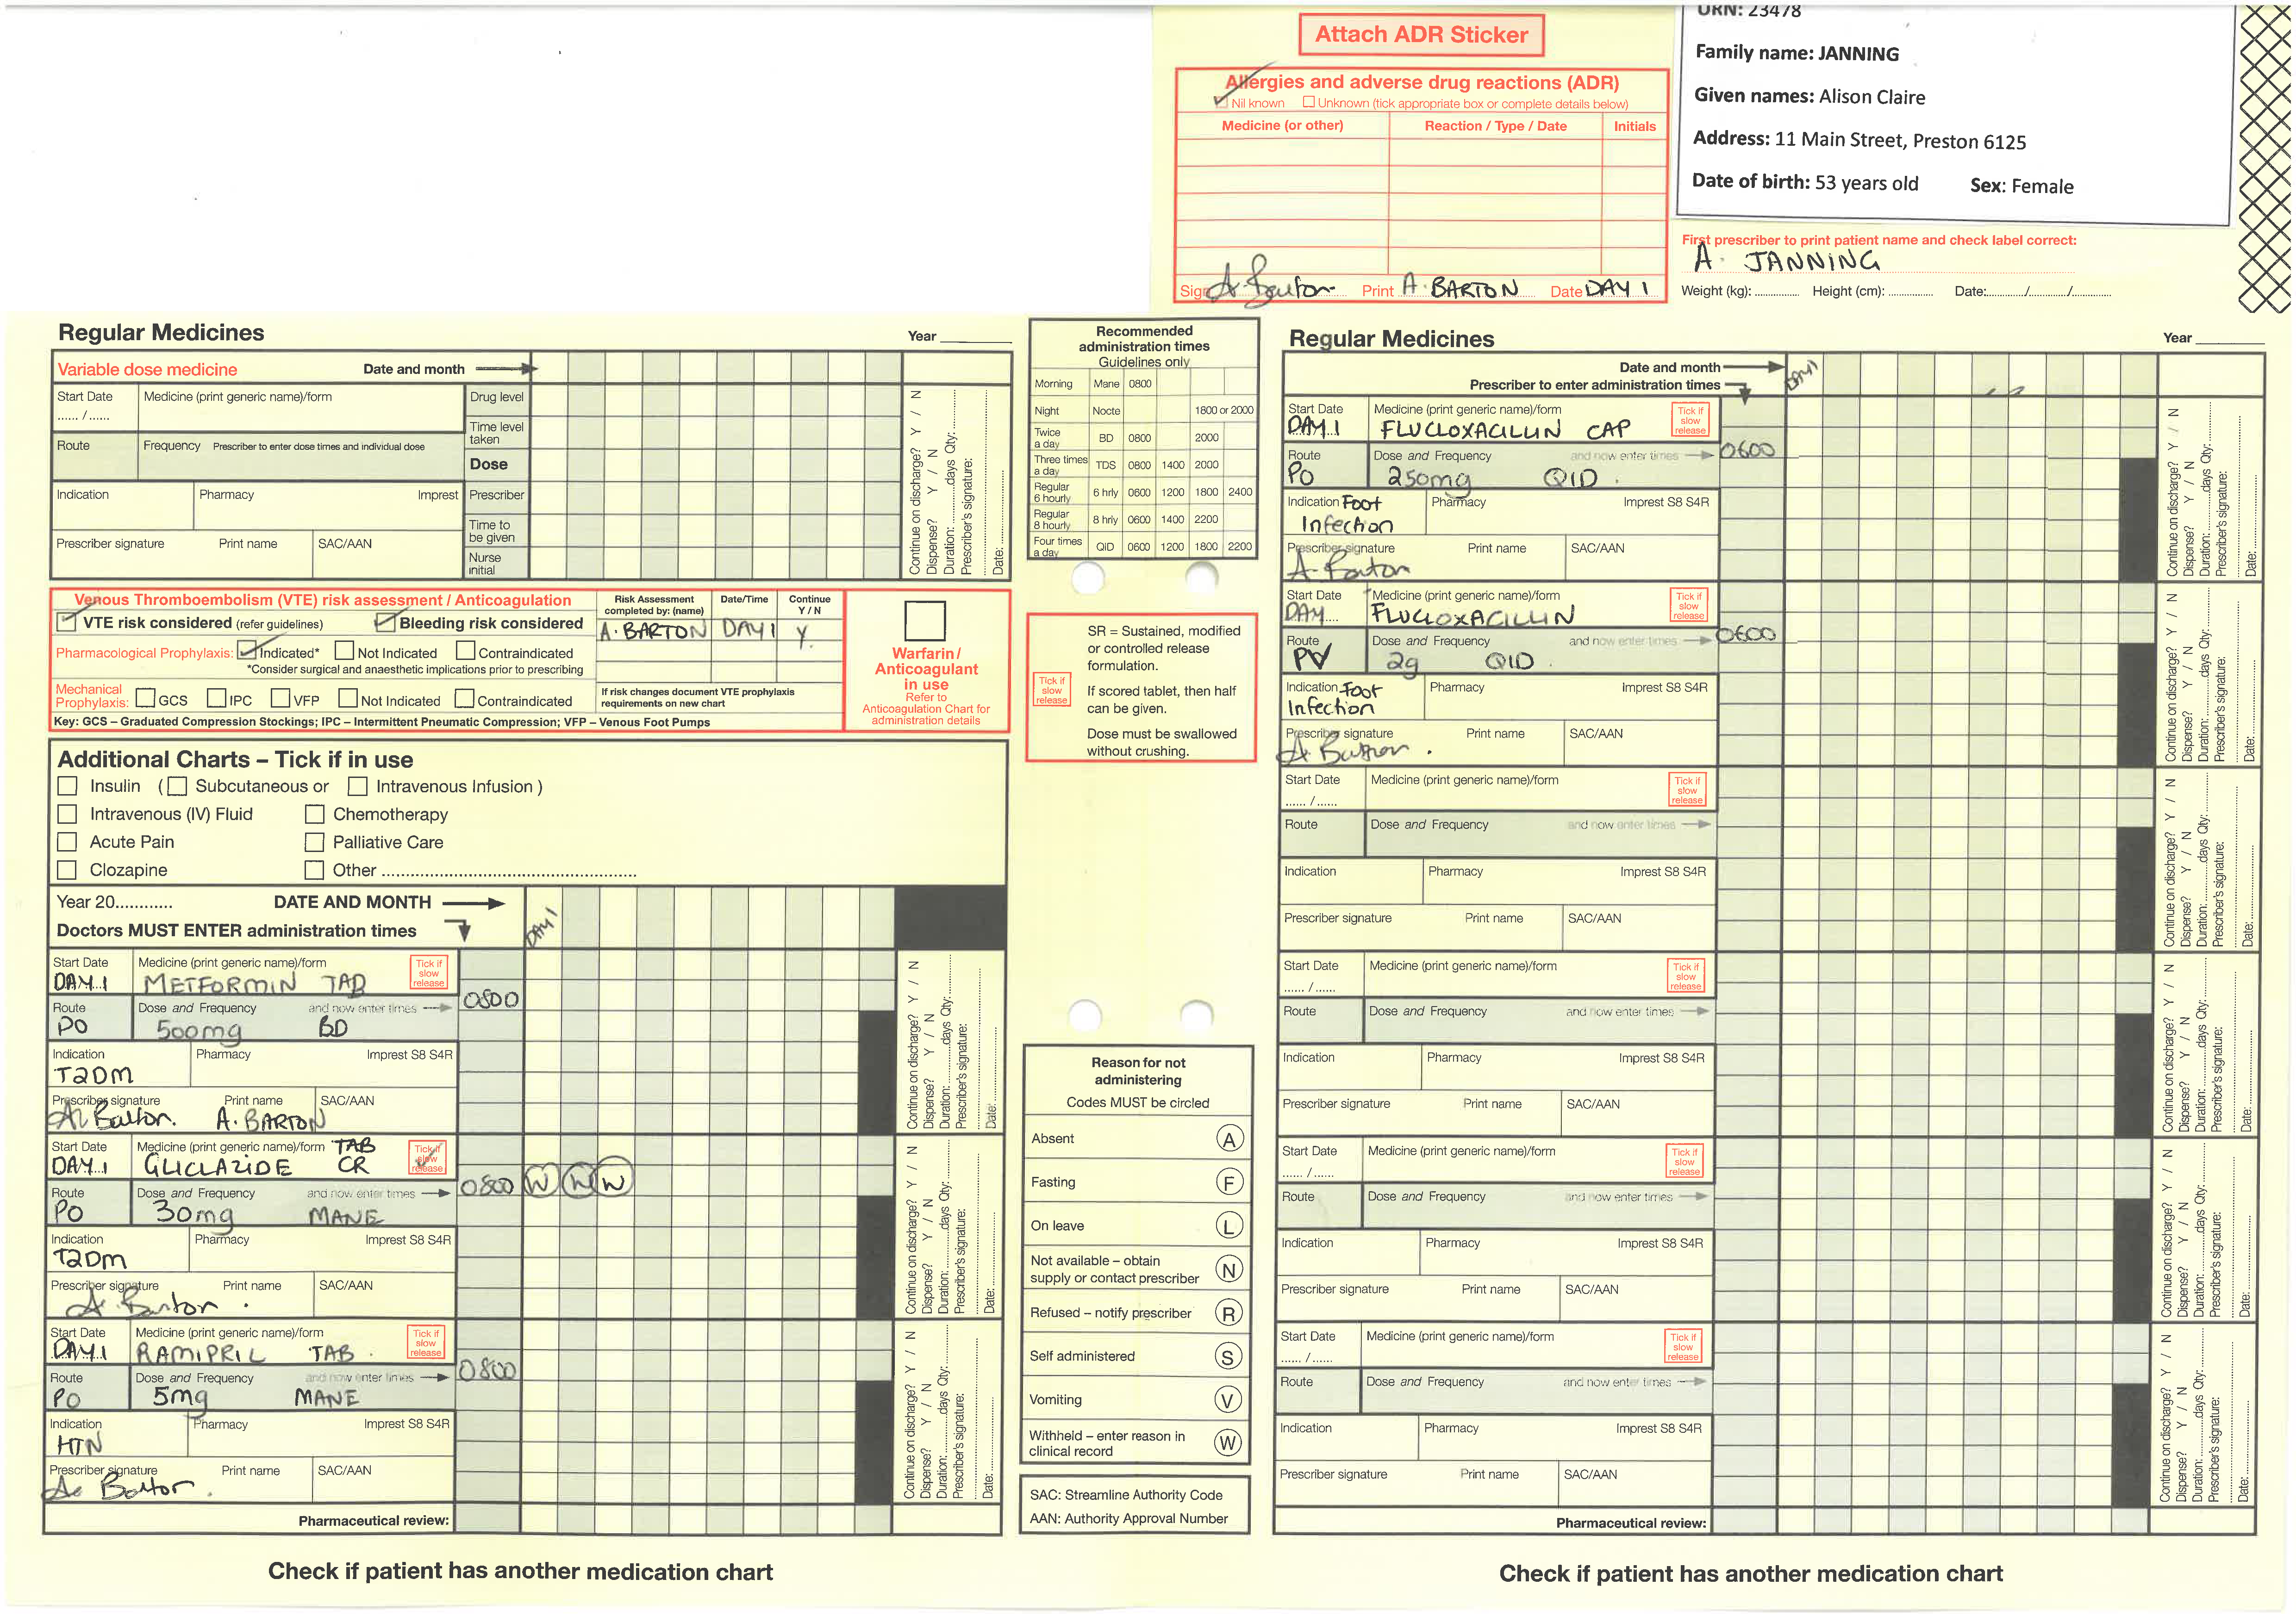 Attach ADR Sticker
Allergies and adverse drug reactions (ADR)
Nil known Unknown (tick appropriate box or complete details below)
Medicine (or other) Reaction / Type / Date Initials
Sign A. Barton Print A. BARTON Date DAY 1
URN: 23478
Family name: JANNING
Given names: Alison Claire
Address: 11 Main Street, Preston 6125
Date of birth: 53 years old Sex: Female
First prescriber to print patient name and check label correct:
A. JANNING
Weight (kg): Height (cm): Date: / /
Regular Medicines Year
Variable dose medicine Date and month
Start Date Medicine (print generic name)/form Drug level
...... / ......
Time level taken
Route Frequency Prescriber to enter dose times and individual dose
Dose
Indication Pharmacy Imprest Prescriber
Time to be given
Prescriber signature Print name SAC/AAN
Nurse initial
Continue on discharge? Y / N
Dispense? Y / N
Duration: days Qty:
Prescriber's signature:
Date:
Venous Thromboembolism (VTE) risk assessment / Anticoagulation
VTE risk considered (refer guidelines) Bleeding risk considered
Pharmacological Prophylaxis: Indicated* Not Indicated Contraindicated
*Consider surgical and anaesthetic implications prior to prescribing
Mechanical Prophylaxis: GCS IPC VFP Not Indicated Contraindicated
Key: GCS – Graduated Compression Stockings; IPC – Intermittent Pneumatic Compression; VFP – Venous Foot Pumps
Risk Assessment completed by: (name) Date/Time Continue Y / N
A. BARTON DAY 1 Y.
If risk changes document VTE prophylaxis requirements on new chart
Warfarin / Anticoagulant in use
Refer to Anticoagulation Chart for administration details
Additional Charts – Tick if in use
Insulin ( Subcutaneous or Intravenous Infusion )
Intravenous (IV) Fluid Chemotherapy
Acute Pain Palliative Care
Clozapine Other
Year 20............ DATE AND MONTH
DAY 1
Doctors MUST ENTER administration times
Start Date Medicine (print generic name)/form Tick if slow release
DAY 1 METFORMIN TAB
0800
Route Dose and Frequency and now enter times
PO 500mg BD
Indication Pharmacy Imprest S8 S4R
T2DM
Prescriber signature Print name SAC/AAN
A. Barton. A. BARTON
Continue on discharge? Y / N
Dispense? Y / N
Duration: days Qty:
Prescriber's signature:
Date:
Start Date Medicine (print generic name)/form TAB Tick if slow release
DAY 1 GLICLAZIDE CR
0800 W W W
Route Dose and Frequency and now enter times
PO 30mg MANE
Indication Pharmacy Imprest S8 S4R
T2DM
Prescriber signature Print name SAC/AAN
A. Barton.
Continue on discharge? Y / N
Dispense? Y / N
Duration: days Qty:
Prescriber's signature:
Date:
Start Date Medicine (print generic name)/form Tick if slow release
DAY 1 RAMIPRIL TAB.
0800
Route Dose and Frequency and now enter times
PO 5mg MANE
Indication Pharmacy Imprest S8 S4R
HTN
Prescriber signature Print name SAC/AAN
A. Barton.
Continue on discharge? Y / N
Dispense? Y / N
Duration: days Qty:
Prescriber's signature:
Date:
Pharmaceutical review:
Check if patient has another medication chart
Recommended administration times
Guidelines only
Morning Mane 0800
Night Nocte 1800 or 2000
Twice a day BD 0800 2000
Three times a day TDS 0800 1400 2000
Regular 6 hourly 6 hrly 0600 1200 1800 2400
Regular 8 hourly 8 hrly 0600 1400 2200
Four times a day QID 0600 1200 1800 2200
Tick if slow release
SR = Sustained, modified or controlled release formulation.
If scored tablet, then half can be given.
Dose must be swallowed without crushing.
Reason for not administering
Codes MUST be circled
Absent A
Fasting F
On leave L
Not available – obtain supply or contact prescriber N
Refused – notify prescriber R
Self administered S
Vomiting V
Withheld – enter reason in clinical record W
SAC: Streamline Authority Code
AAN: Authority Approval Number
Regular Medicines Year
Date and month
DAY 1
Prescriber to enter administration times
Start Date Medicine (print generic name)/form Tick if slow release
DAY 1 FLUCLOXACILLIN CAP
0600
Route Dose and Frequency and now enter times
PO 250mg QID.
Indication Foot Pharmacy Imprest S8 S4R
Infection
Prescriber signature Print name SAC/AAN
A. Barton
Continue on discharge? Y / N
Dispense? Y / N
Duration: days Qty:
Prescriber's signature:
Date:
Start Date Medicine (print generic name)/form Tick if slow release
DAY FLUCLOXACILLIN
0600
Route Dose and Frequency and now enter times
2g QID.
Indication Foot Pharmacy Imprest S8 S4R
Infection
Prescriber signature Print name SAC/AAN
A. Barton.
Continue on discharge? Y / N
Dispense? Y / N
Duration: days Qty:
Prescriber's signature:
Date:
Start Date Medicine (print generic name)/form Tick if slow release
...... / ......
Route Dose and Frequency and now enter times
Indication Pharmacy Imprest S8 S4R
Prescriber signature Print name SAC/AAN
Continue on discharge? Y / N
Dispense? Y / N
Duration: days Qty:
Prescriber's signature:
Date:
Start Date Medicine (print generic name)/form Tick if slow release
...... / ......
Route Dose and Frequency and now enter times
Indication Pharmacy Imprest S8 S4R
Prescriber signature Print name SAC/AAN
Continue on discharge? Y / N
Dispense? Y / N
Duration: days Qty:
Prescriber's signature:
Date:
Start Date Medicine (print generic name)/form Tick if slow release
...... / ......
Route Dose and Frequency and now enter times
Indication Pharmacy Imprest S8 S4R
Prescriber signature Print name SAC/AAN
Continue on discharge? Y / N
Dispense? Y / N
Duration: days Qty:
Prescriber's signature:
Date:
Start Date Medicine (print generic name)/form Tick if slow release
...... / ......
Route Dose and Frequency and now enter times
Indication Pharmacy Imprest S8 S4R
Prescriber signature Print name SAC/AAN
Continue on discharge? Y / N
Dispense? Y / N
Duration: days Qty:
Prescriber's signature:
Date:
Pharmaceutical review:
Check if patient has another medication chart